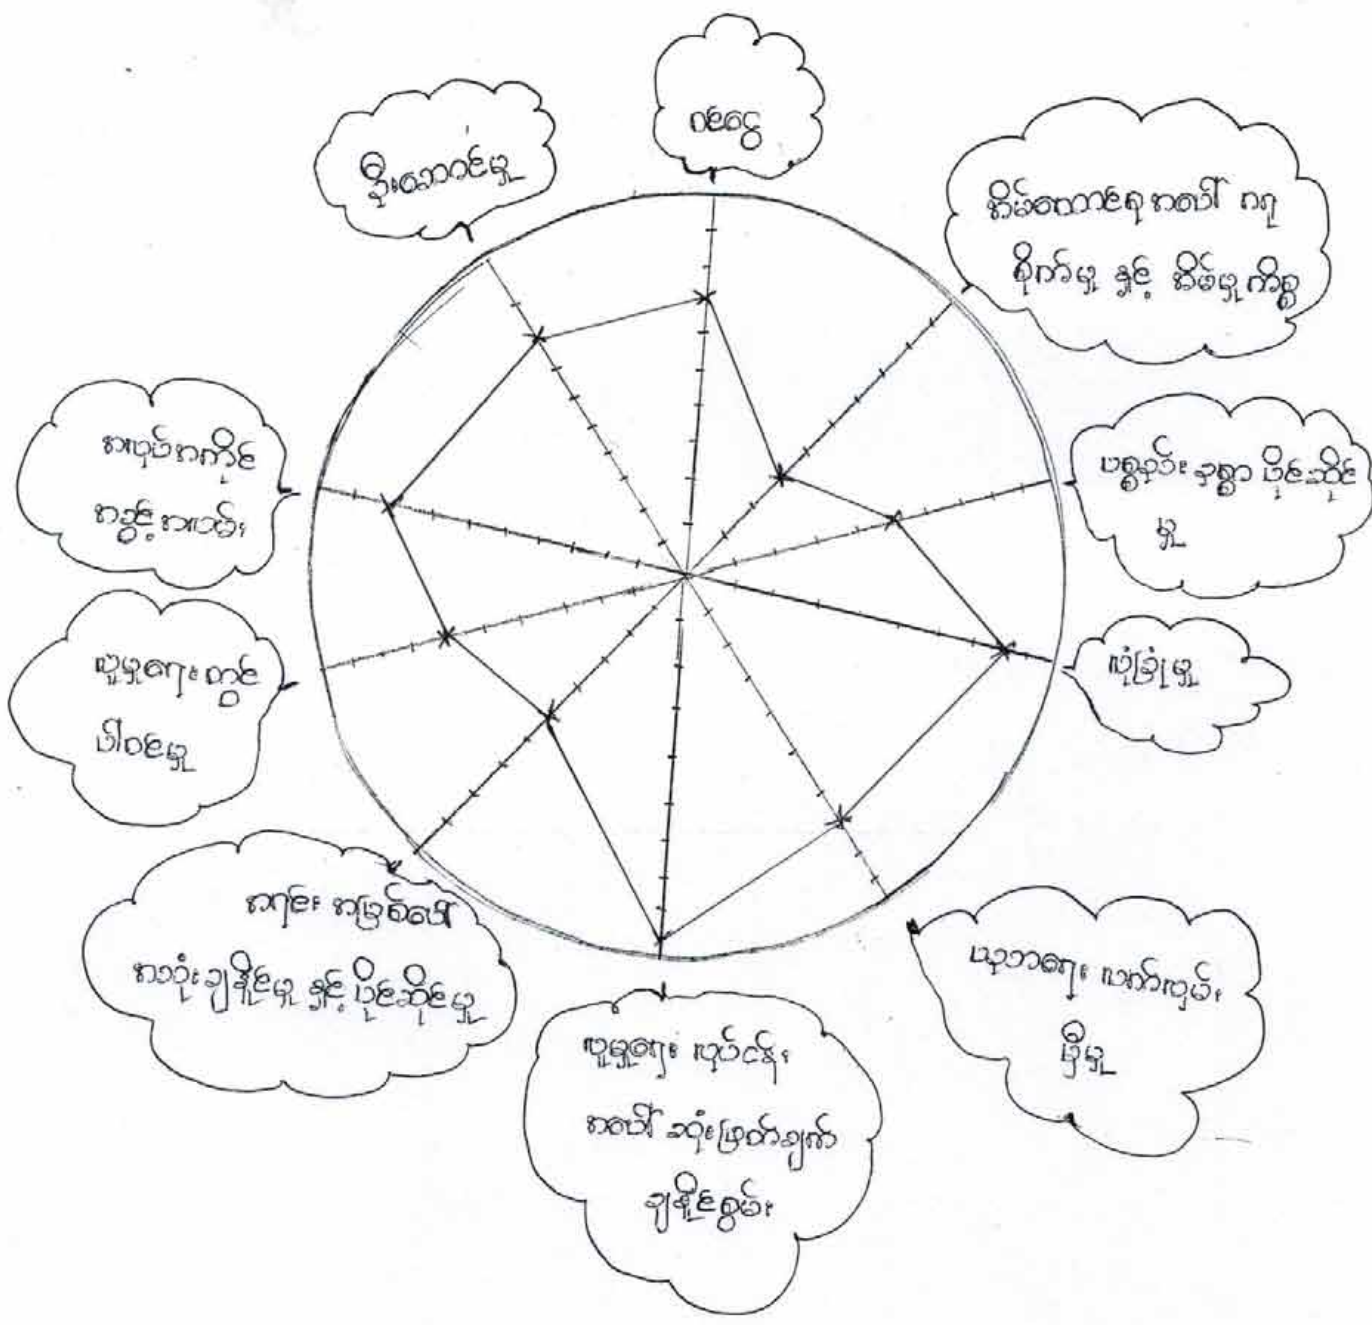 ဝင်ငွေ
အိမ်ထောင်ရှုအပေါ် ဂရု
စိုက်မှု နှင့် အိမ်မှုကိစ္စ
ပစ္စည်း ဥစ္စာ ပိုင်ဆိုင်
မှု
လုံခြုံမှု
ပညာရေး လက်လှမ်း
မှီမှု
လူမှုရေး လုပ်ငန်း
အပေါ် ဆုံးဖြတ်ချက်
ချနိုင်စွမ်း
အရင်း အမြစ်ပေါ်
အသုံးချနိုင်မှု နှင့် ပိုင်ဆိုင်မှု
လူမှုရေး တွင်
ပါဝင်မှု
အလုပ်အကိုင်
အခွင့်အလမ်း
ဦးဆောင်မှု